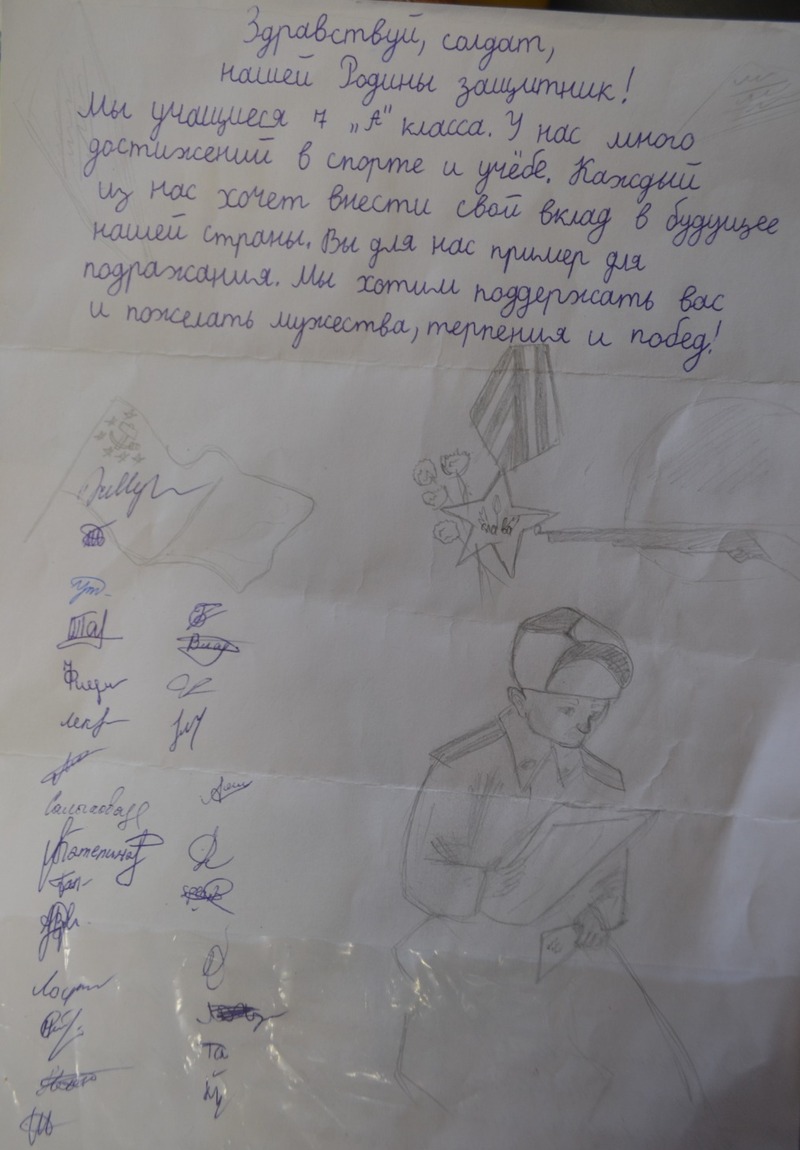 Здравствуй, солдат,
нашей Родины защитник!
Мы учащиеся 7 „А" класса. У нас много
достижений в спорте и учёбе. Каждый
из нас хочет внести свой вклад в будущее
нашей страны. Вы для нас пример для
подражания. Мы хотим поддержать вас
и пожелать мужества, терпения и побед!
слава
Влад
Катерина
Та